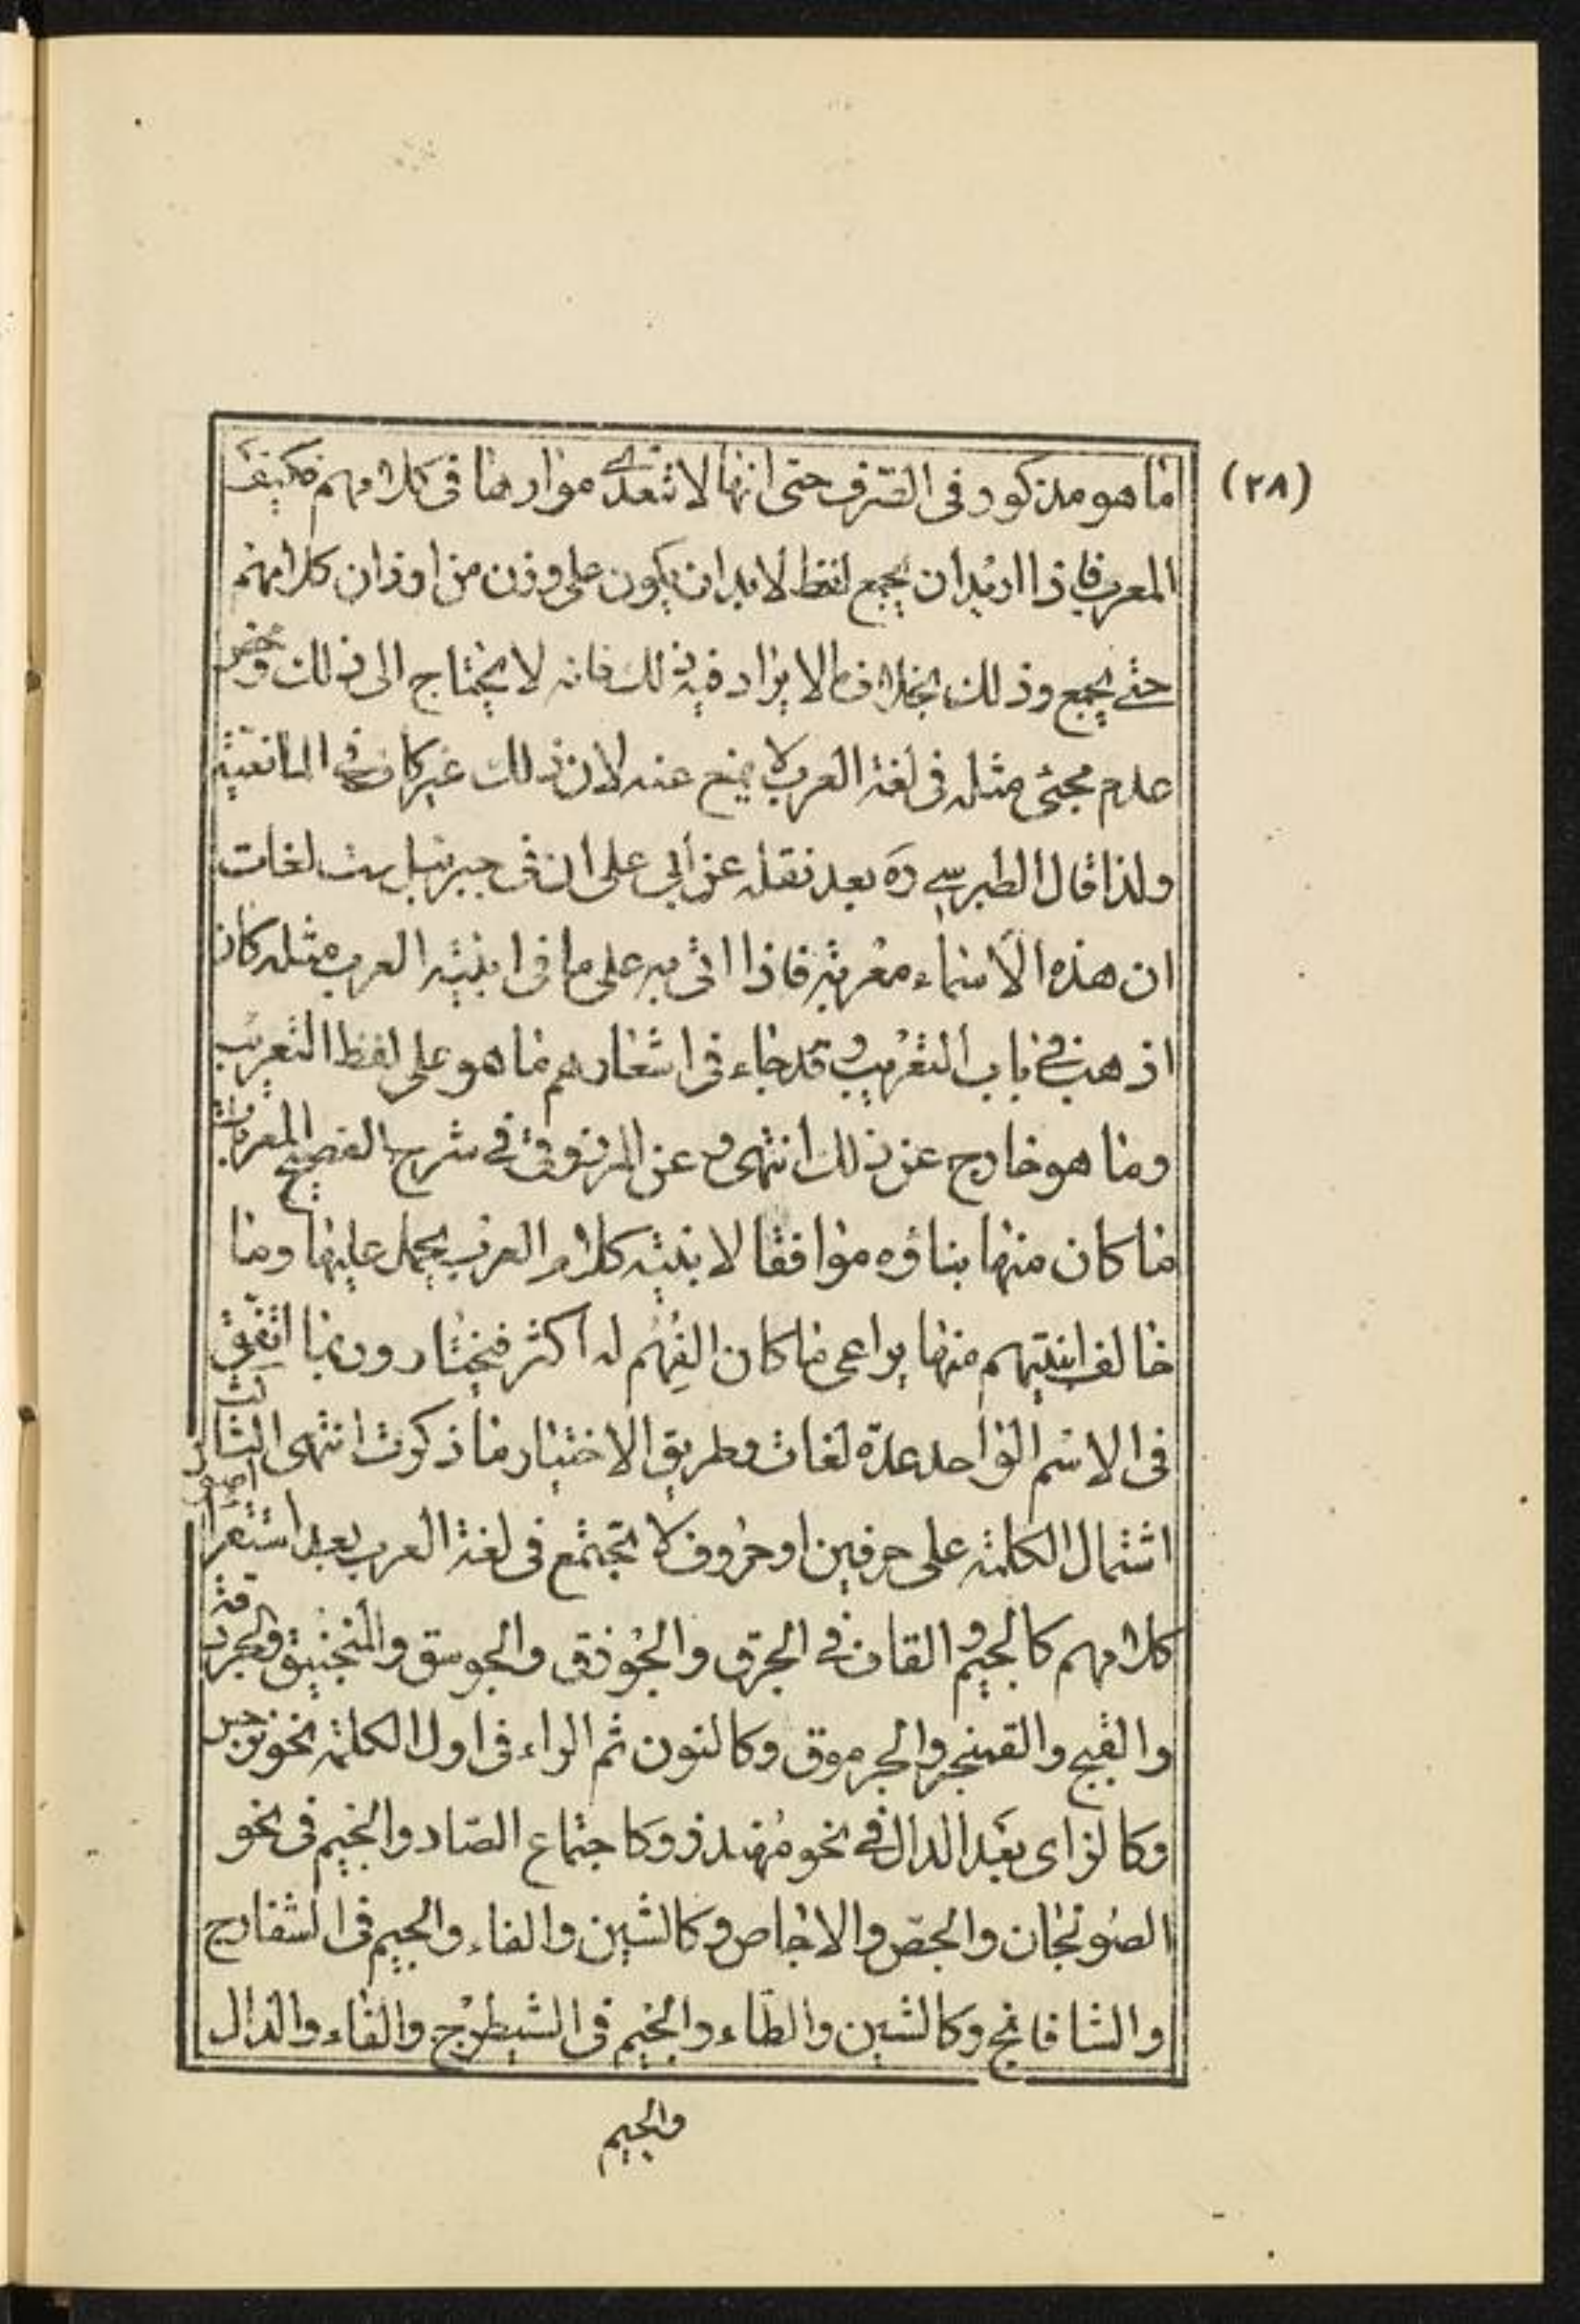 (٢٨)
ما هو مذكور فى الصّرف حتى انها لا تتعدّى مواردها فى كلامهم فكيف
المعرب فاذا اريد ان يجمع لفظ لا بد ان يكون على وزن من اوزان كلامهم
حتى يجمع وذلك بخلاف ما لا يراد فيه ذلك فانه لا يحتاج الى ذلك ومحض
عدم مجئى مثله فى لغة العرب لا يمنع عنه لان ذلك غير كاف فى المانعيّة
ولذا قال الطبرسى ره بعد نقله عن أبي على ان فى جبرئيل ست لغات
ان هذه الأسماء معربة فاذا اتى به على ما فى ابنية العرب مثله كان
اذهب فى باب التعريب وقد جاء فى اشعارهم ما هو على لفظ التعريب
وما هو خارج عن ذلك انتهى وعن المرزوقى فى شرح الفصيح المعربات
ما كان منها بناؤه موافقا لابنية كلام العرب يحمل عليها وما
خالف ابنيتهم منها يراعى ما كان الفهم له أكثر فيختار وربما اتفق
فى الاسم الواحد عدّة لغات وطريق الاختيار ما ذكرت انتهى الثالث
اشتمال الكلمة على حرفين او حروف لا تجتمع فى لغة العرب بعد استقراء
كلامهم كالجيم والقاف فى الجرق والجوزق والجوسق والمنجنيق والجردقة
والقبج والقبنجر والجرموق وكالنون ثم الراء فى اول الكلمة نحو نرجس
وكالزاى بعد الدال فى نحو مهندز وكاجتماع الصّاد والجيم فى نحو
الصولجان والجصّ والاجاص وكالشين والفاء والجيم فى الشفارج
والشافانج وكالشين والطّاء والجيم فى الشيطرج والفاء والدال
والجيم